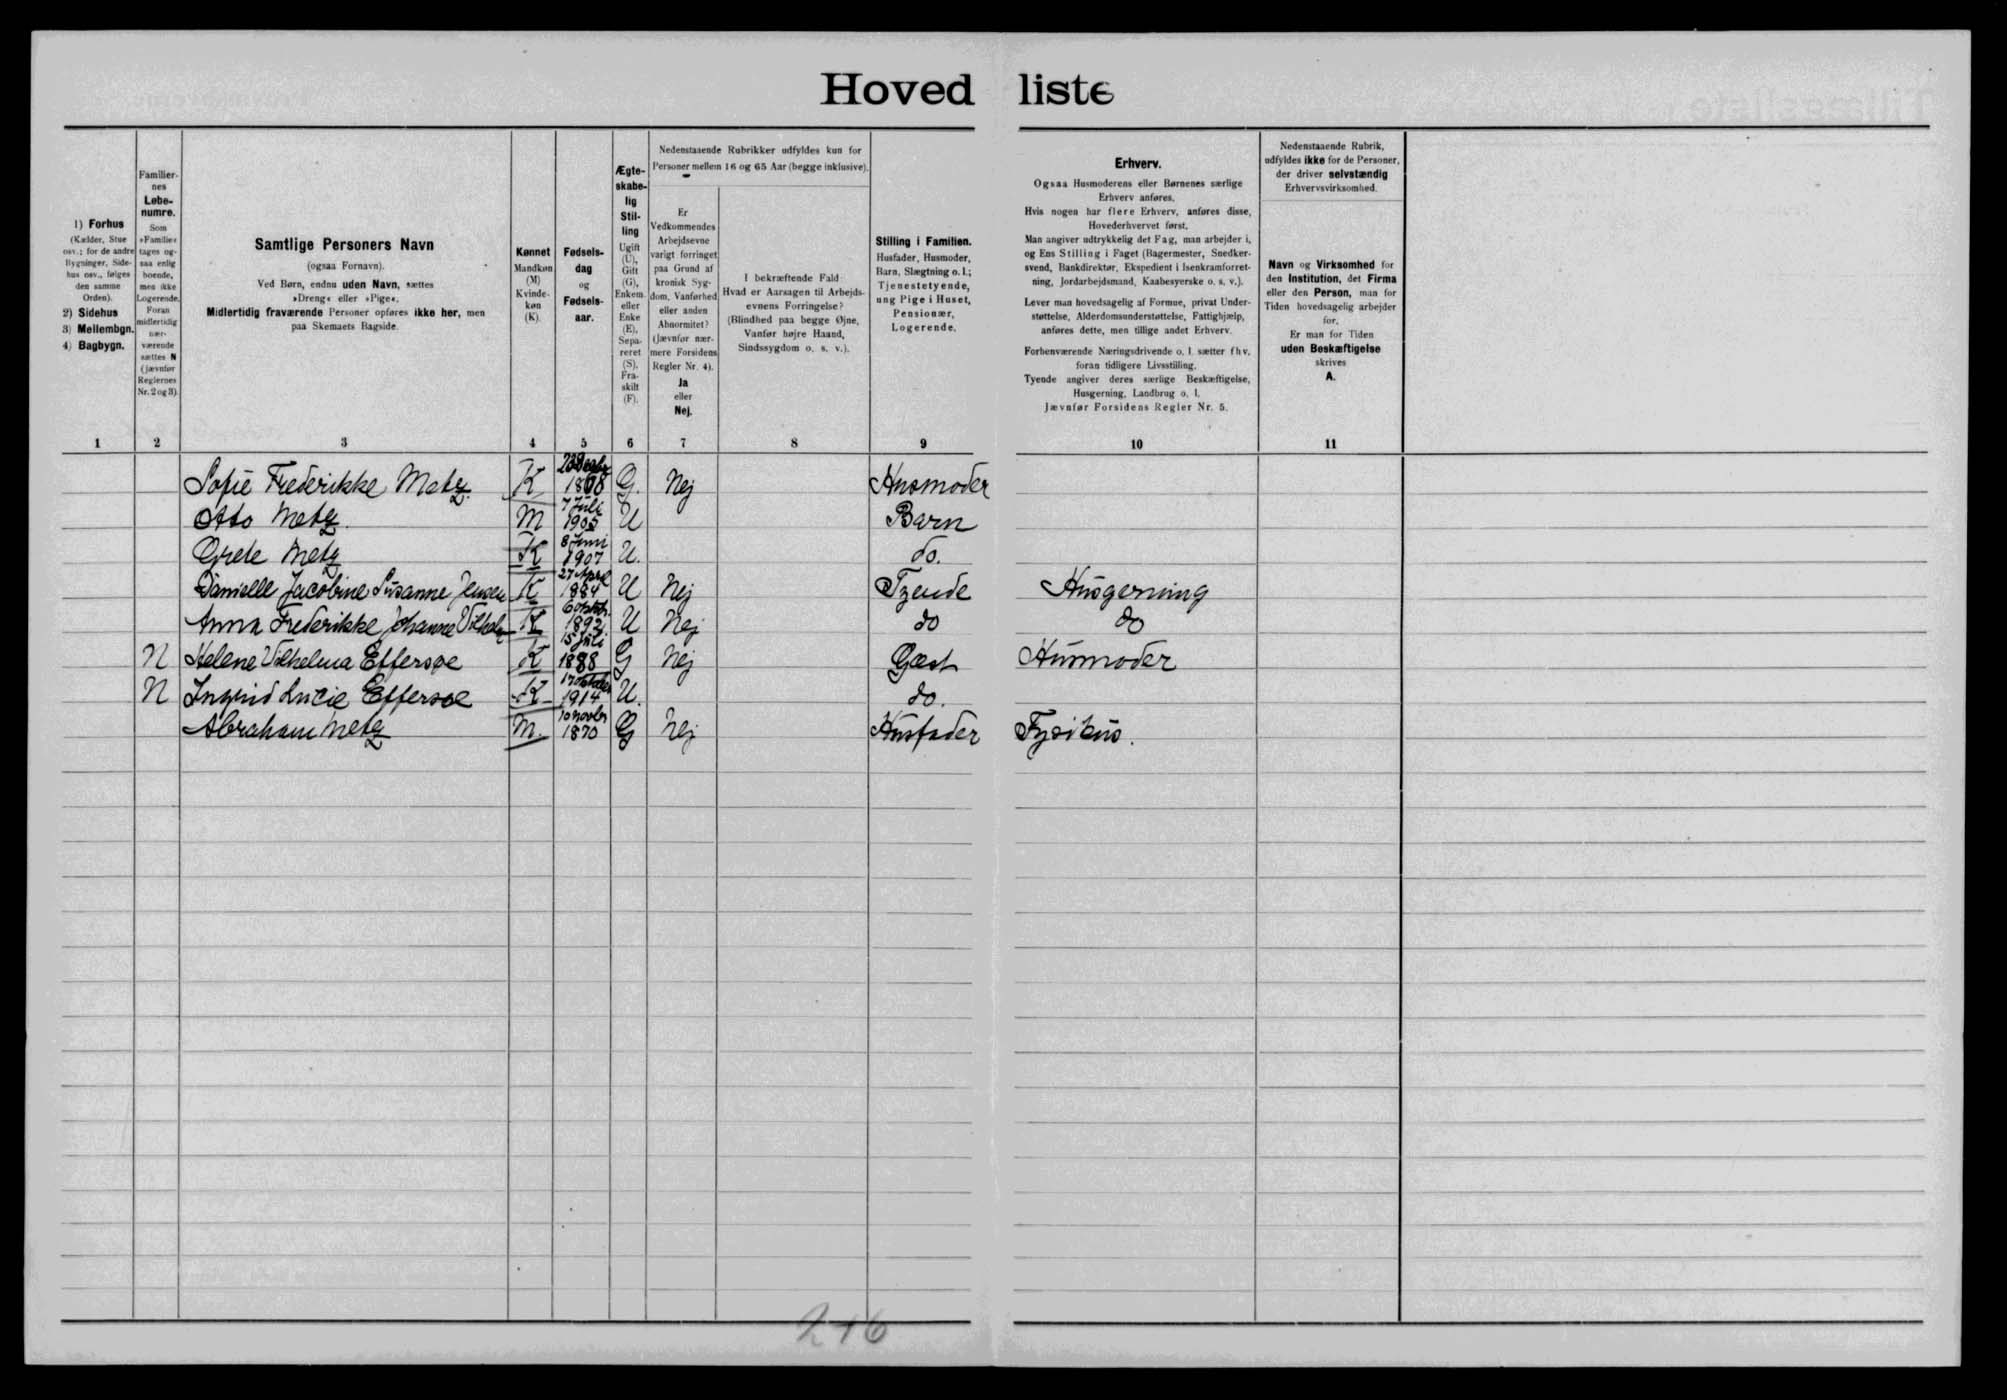 Hovedliste
1) Forhus
(Kælder, Stue
osv.; for de andre
Bygninger, Side-
hus osv., følges
den samme
Orden).
2) Sidehus
3) Mellembgn.
4) Bagbygn.
Familier-
nes
Løbe-
numre.
Som
»Familie«
tages og-
saa enlig
boende,
men ikke
Logerende.
Foran
midlertidig
nær-
værende
sættes N
(jævnfør
Reglernes
Nr. 2 og 3).
Samtlige Personers Navn
(ogsaa Fornavn).
Ved Børn, endnu uden Navn, sættes
»Dreng« eller »Pige«.
Midlertidig fraværende Personer opføres ikke her, men
paa Skemaets Bagside.
Kønnet
Mandkøn
(M)
Kvinde-
køn
(K).
Fødsels-
dag
og
Fødsels-
aar.
Ægte-
skabe-
lig
Stil-
ling
Ugift
(U),
Gift
(G),
Enkem.
eller
Enke
(E),
Sepa-
reret
(S),
Fra-
skilt
(F).
Nedenstaaende Rubrikker udfyldes kun for
Personer mellem 16 og 65 Aar (begge inklusive).
Er
Vedkommendes
Arbejdsevne
varigt forringet
paa Grund af
kronisk Syg-
dom, Vanførhed
eller anden
Abnormitet?
(Jævnfør nær-
mere Forsidens
Regler Nr. 4).
Ja
eller
Nej.
I bekræftende Fald:
Hvad er Aarsagen til Arbejds-
evnens Forringelse?
(Blindhed paa begge Øjne,
Vanfør højre Haand,
Sindssygdom o. s. v.).
Stilling i Familien.
Husfader, Husmoder,
Barn, Slægtning o. l.;
Tjenestetyende,
ung Pige i Huset,
Pensionær,
Logerende.
Erhverv.
Ogsaa Husmoderens eller Børnenes særlige
Erhverv anføres.
Hvis nogen har flere Erhverv, anføres disse,
Hovederhvervet først.
Man angiver udtrykkelig det Fag, man arbejder i,
og Ens Stilling i Faget (Bagermester, Snedker-
svend, Bankdirektør, Ekspedient i Isenkramforret-
ning, Jordarbejdsmand, Kaabesyerske o. s. v.).
Lever man hovedsagelig af Formue, privat Under-
støttelse, Alderdomsunderstøttelse, Fattighjælp,
anføres dette, men tillige andet Erhverv.
Forhenværende Næringsdrivende o. l. sætter fhv.
foran tidligere Livsstilling.
Tyende angiver deres særlige Beskæftigelse,
Husgerning, Landbrug o. l.
Jævnfør Forsidens Regler Nr. 5.
Nedenstaaende Rubrik,
udfyldes ikke for de Personer,
der driver selvstændig
Erhvervsvirksomhed.
Navn og Virksomhed for
den Institution, det Firma
eller den Person, man for
Tiden hovedsagelig arbejder
for.
Er man for Tiden
uden Beskæftigelse
skrives
A.
1 2 3 4 5 6 7 8 9 10 11
Sofie Frederikke Metz. K 1878 G. Nej Husmoder
Otto Metz. M 7 Juli 1905 U Barn
Grete Metz K 8 Juni 1907 U. do.
Danielle Jacobine Susanne Jensen K 27 April 1884 U Nej Tyende Husgerning
Anna Frederikke Johanne K 1892 U Nej do do
N Helene Vilhelma Effersøe K 15 Juli 1888 G Nej Gæst Husmoder
N Ingrid Lucie Effersøe K 17 Oktober 1914 U. do.
Abraham Metz M. 10 Novbr 1870 G Nej Husfader Fysikus.
2+6